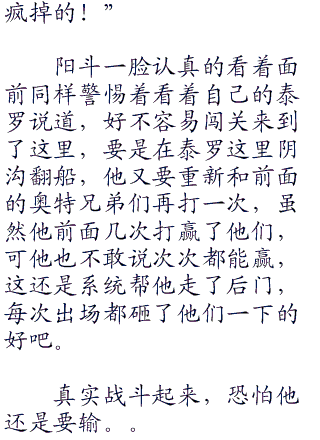 疯掉的！”
阳斗一脸认真的看着面
前同样警惕着看着自己的泰
罗说道，好不容易闯关来到
了这里，要是在泰罗这里阴
沟翻船，他又要重新和前面
的奥特兄弟们再打一次，虽
然他前面几次打赢了他们，
可他也不敢说次次都能赢，
这还是系统帮他走了后门，
每次出场都砸了他们一下的
好吧。
真实战斗起来，恐怕他
还是要输。。